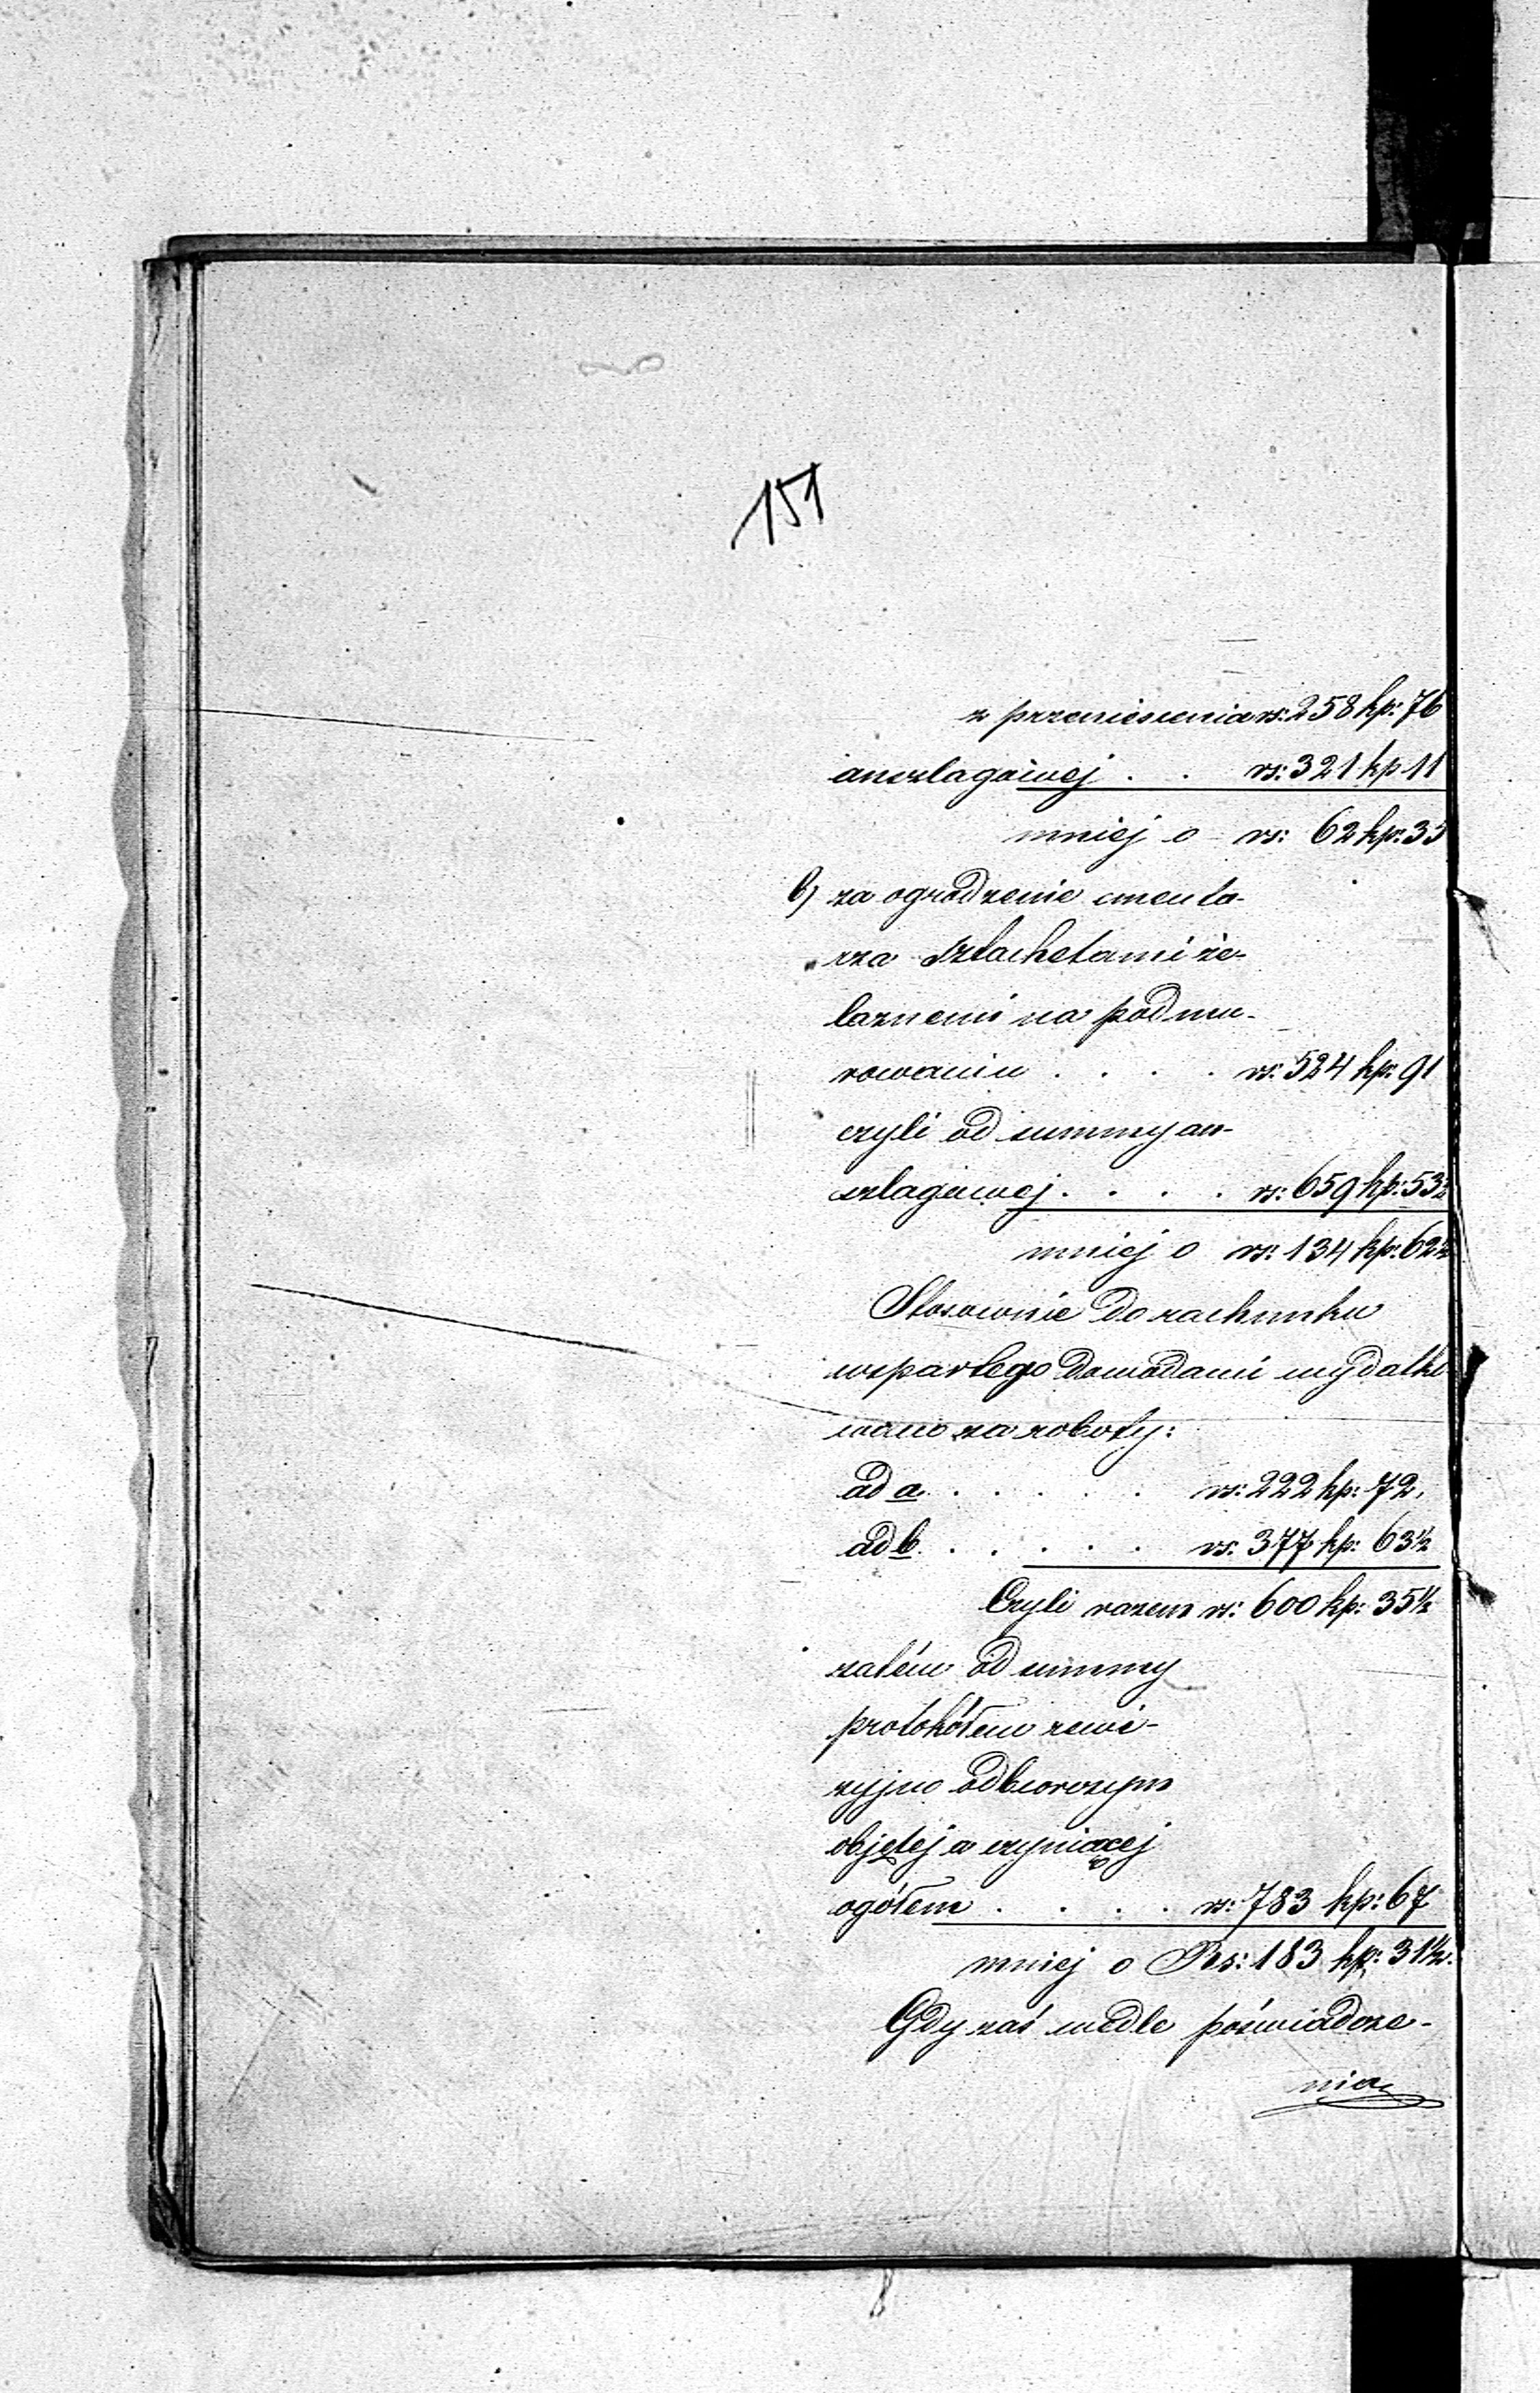 151
z przeniesienia rs: 258 kp: 76
anszlagowej . . rs: 321 kp 11
mniej o rs: 62 kp: 35
b) za ogrodzenie cmenta-
rza sztachetami że-
laznemi na podmu-
rowaniu . . . . rs: 524 kp: 91
czyli od summy an-
szlagowej . . . . rs: 659 kp: 53½
mniej o rs: 134 kp: 62½
Stosownie do rachunku
wspartego dowodami wydatko
wano za roboty:
ad a . . . . . rs: 222 kp: 72,
ad b . . . . . rs: 377 kp: 63½
Czyli razem rs: 600 kp: 35½
zatém od summy
protokółem rewi-
zyjno odbiorczym
objętej a czyniącej
ogółem . . . . rs: 783 kp: 67
mniej o Rs: 183 kp: 31½.
Gdy zaś wedle poświadcze-
nia